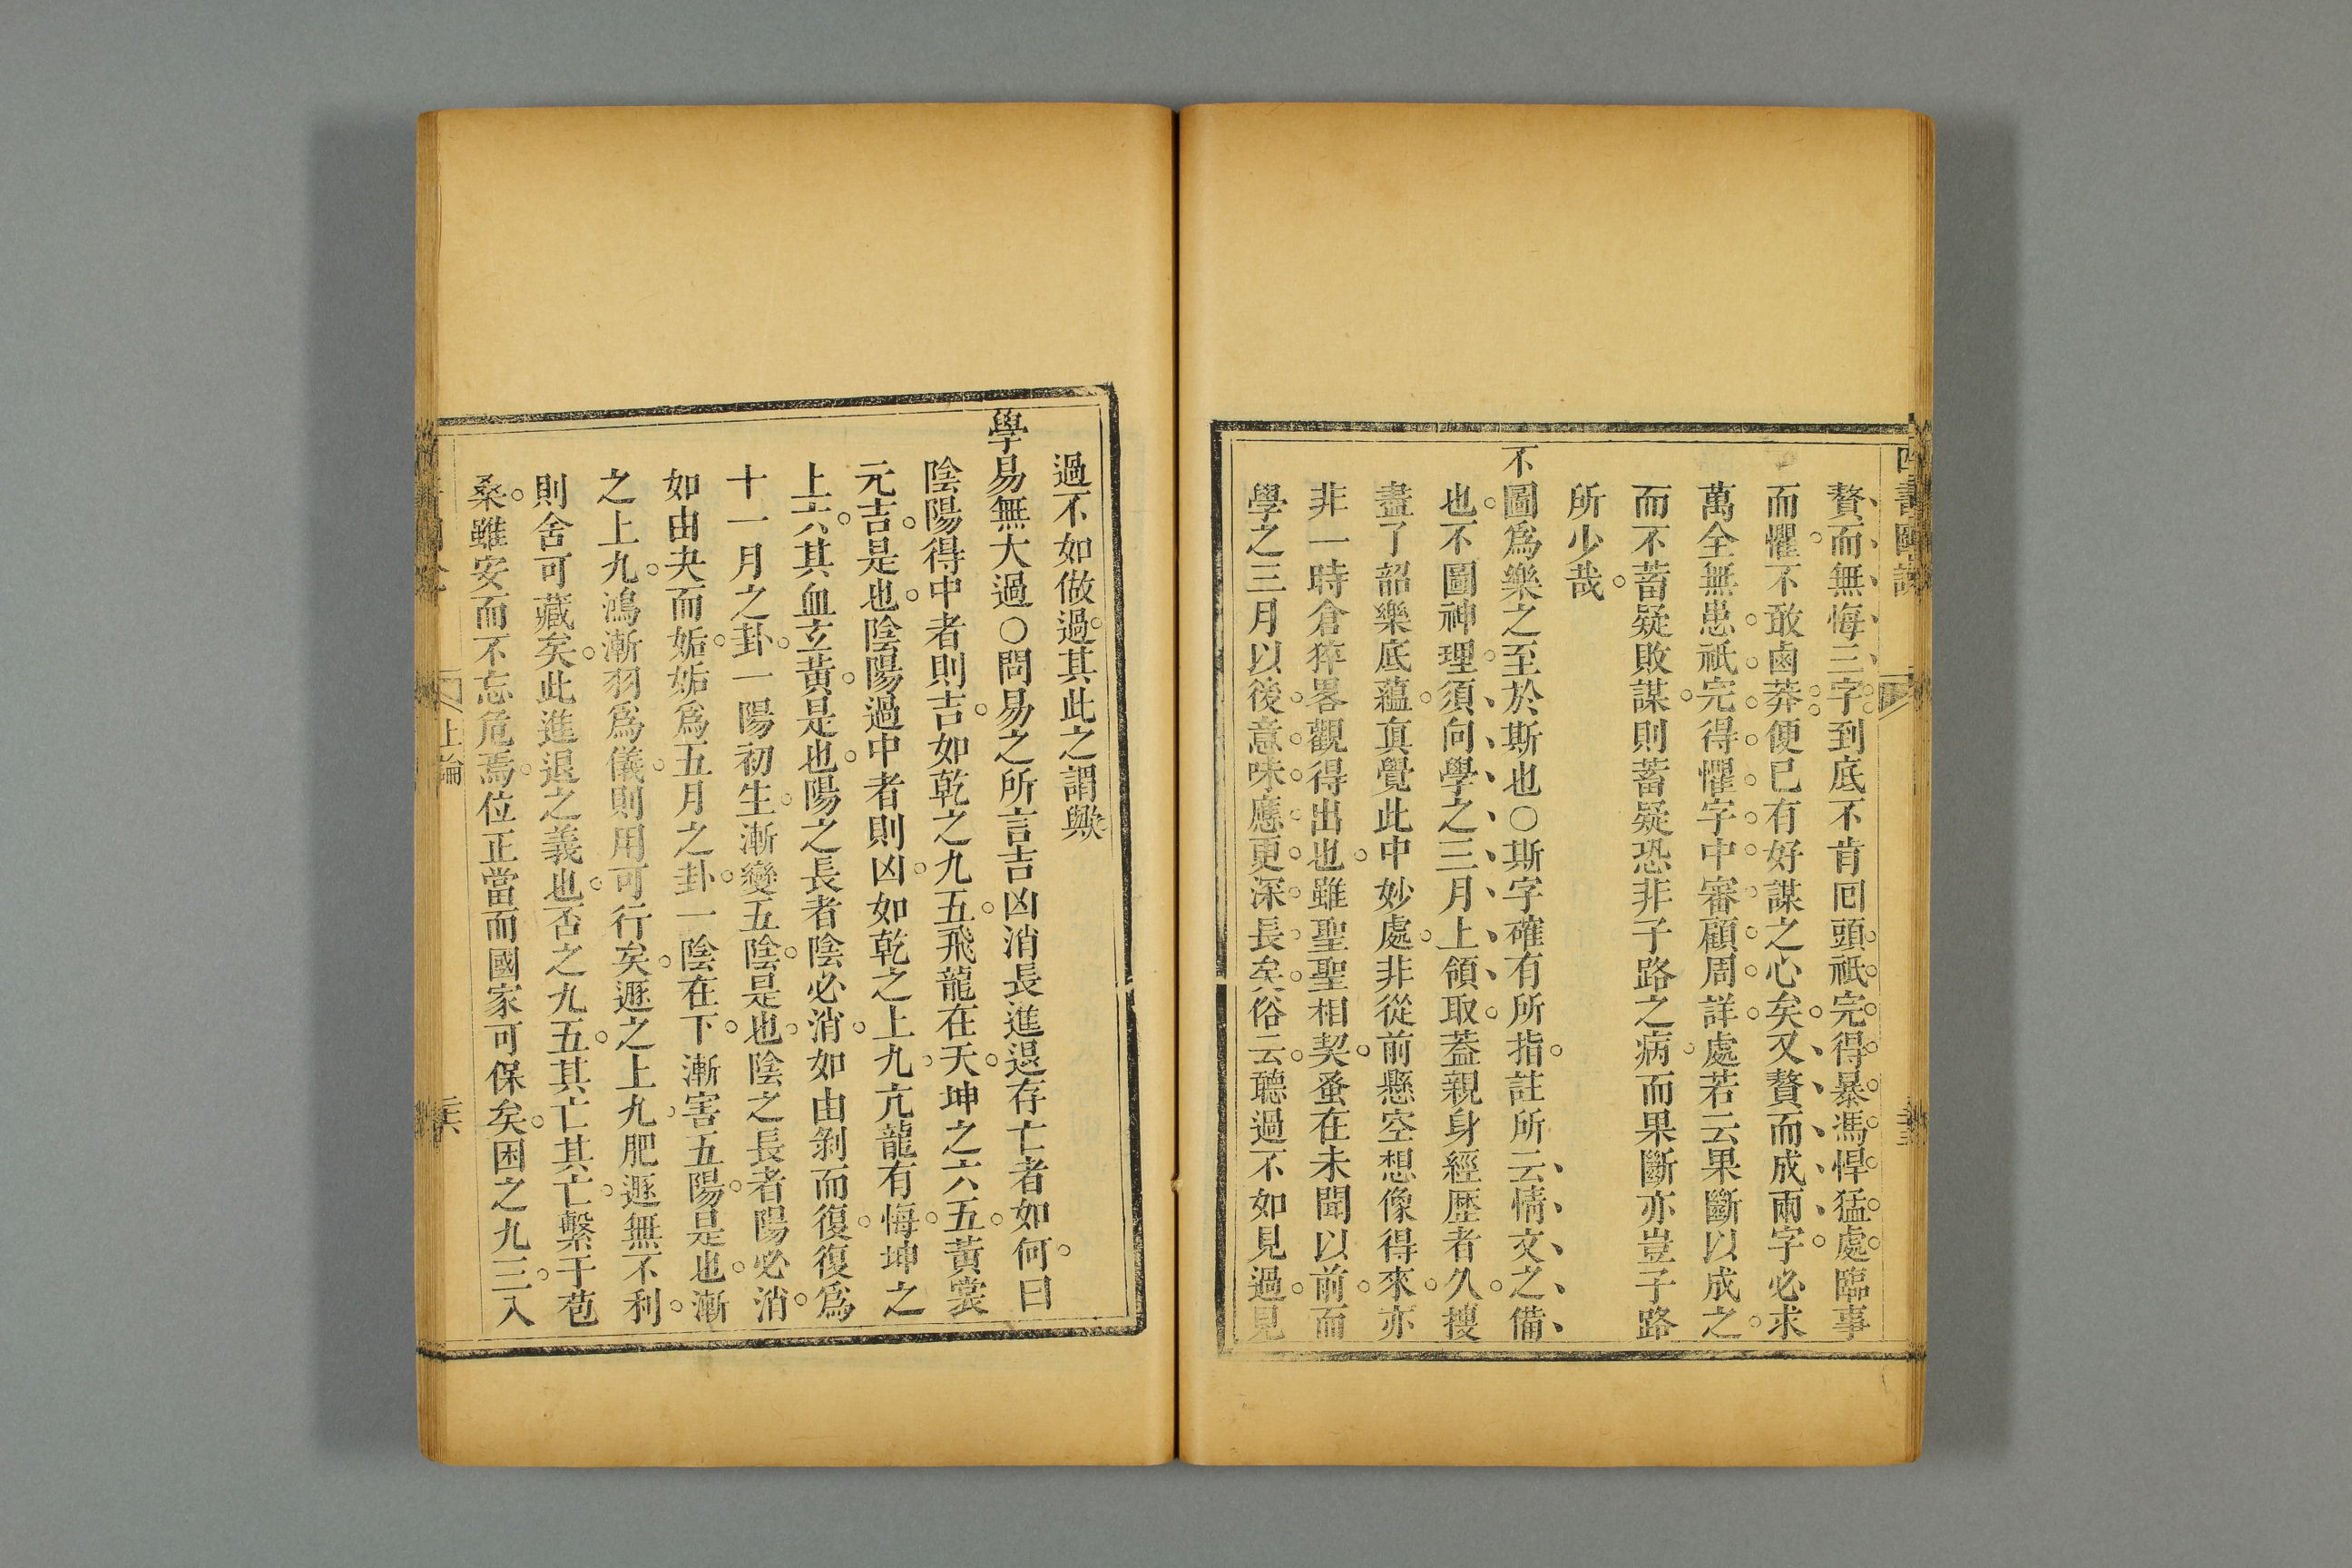 贅而無悔三字到底不肯囘頭祇完得暴馮悍猛處臨事
而懼不敢鹵莽便已有好謀之心矣又贅而成兩字必求
萬全無患祇完得懼字中審顧周詳處若云果斷以成之
而不蓄疑敗謀則蓄疑恐非子路之病而果斷亦豈子路
所少哉
不圖爲樂之至於斯也○斯字確有所指註所云情文之備
也不圖神理須向學之三月上領取葢親身經歷者久搜
盡了韶樂底蘊真覺此中妙處非從前懸空想像得來亦
非一時倉猝畧觀得出也雖聖聖相契蚤在未聞以前而
學之三月以後意味應更深長矣俗云聽過不如見過見
過不如做過其此之謂歟
學易無大過○問易之所言吉凶消長進退存亡者如何曰
陰陽得中者則吉如乾之九五飛龍在天坤之六五黃裳
元吉是也陰陽過中者則凶如乾之上九亢龍有悔坤之
上六其血玄黃是也陽之長者陰必消如由剝而復復爲
十一月之卦一陽初生漸變五陰是也陰之長者陽必消
如由夬而姤姤爲五月之卦一陰在下漸害五陽是也漸
之上九鴻漸羽爲儀則用可行矣遯之上九肥遯無不利
則舍可藏矣此進退之義也否之九五其亡其亡繫于苞
桑雖安而不忘危焉位正當而國家可保矣困之九三入
上論